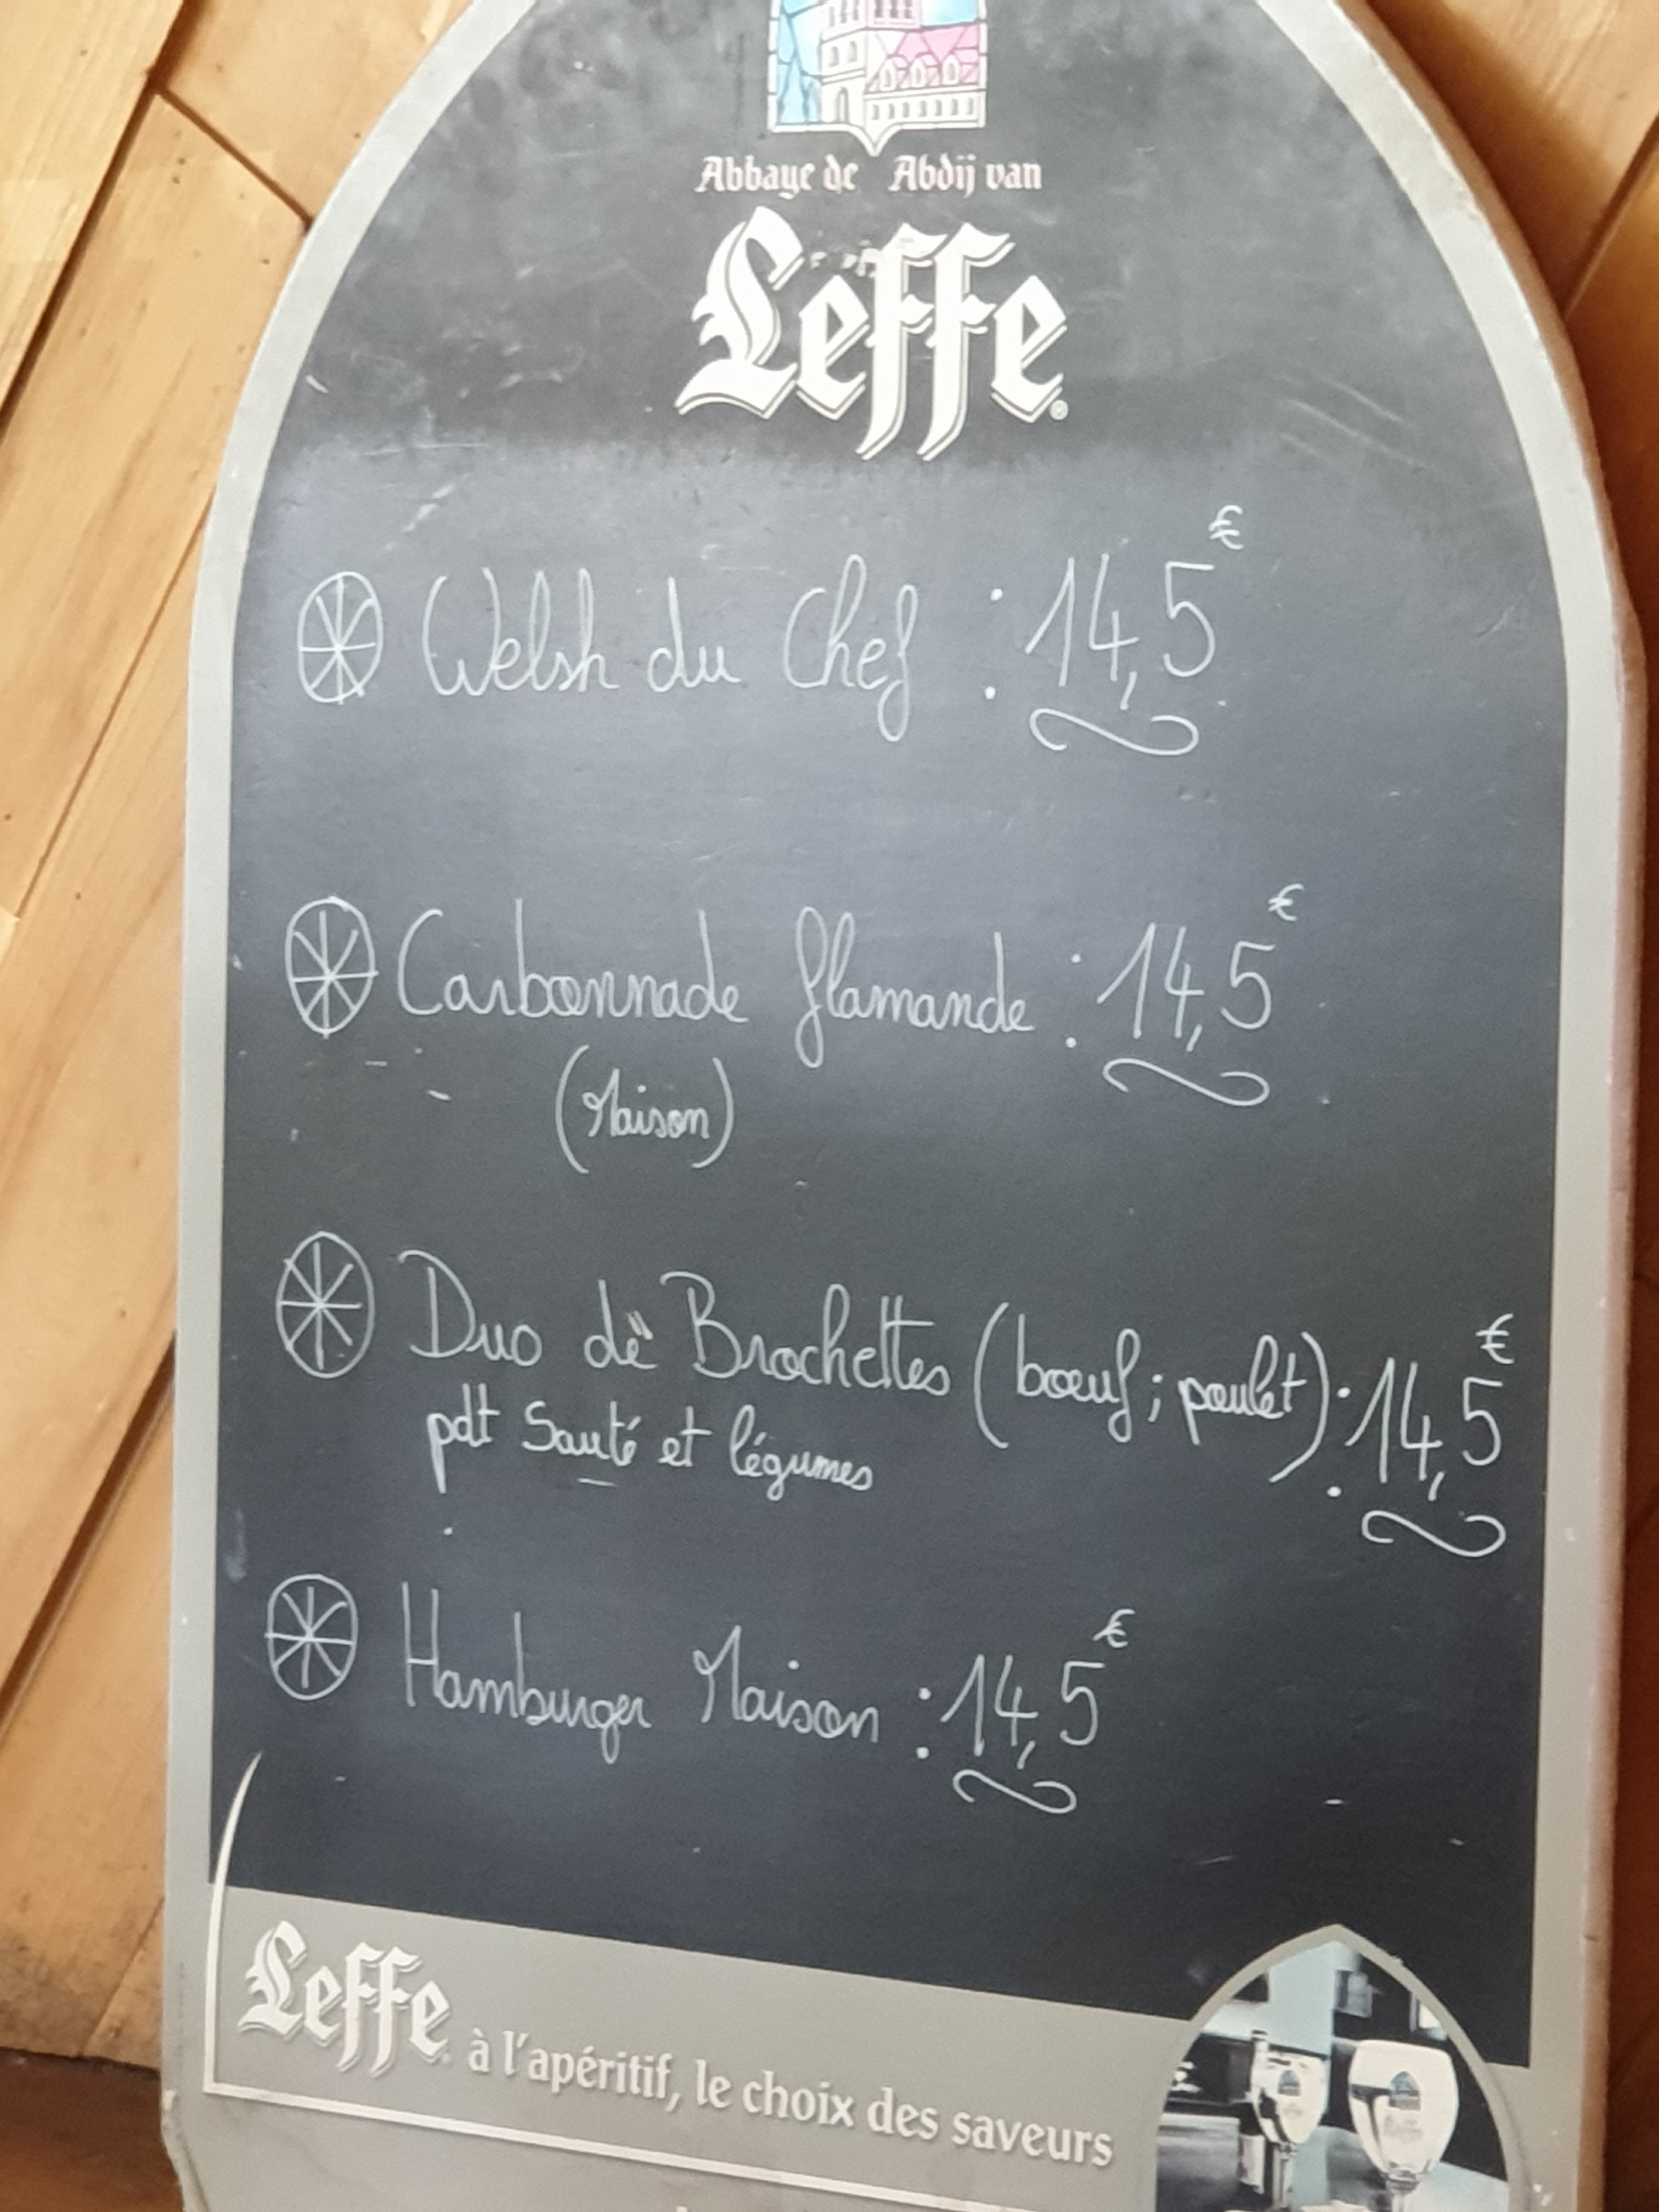 Abbaye de Abdij van
Leffe
Welsh du Chef : 14,5€
Carbonnade flamande : 14,5€
(Maison)
Duo de Brochettes (bœuf ; poulet) : 14,5€
pdt Sauté et légumes
Hamburger Maison : 14,5€
Leffe à l'apéritif, le choix des saveurs